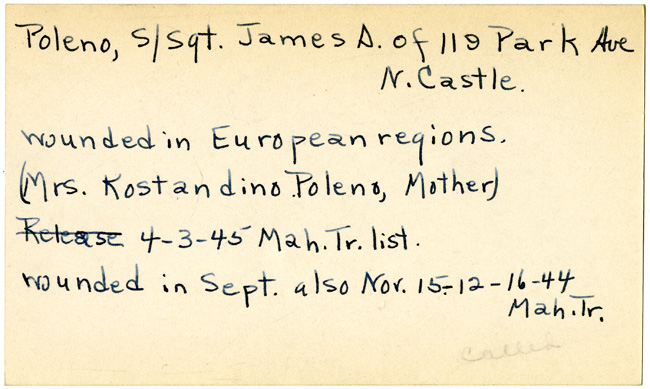 Poleno, S/Sgt. James D. of 119 Park Ave
N. Castle.
wounded in European regions.
(Mrs. Kostandino Poleno, Mother)
Release 4-3-45 Mah. Tr. list.
wounded in Sept. also Nov. 15-12-16-44
Mah. Tr.
called